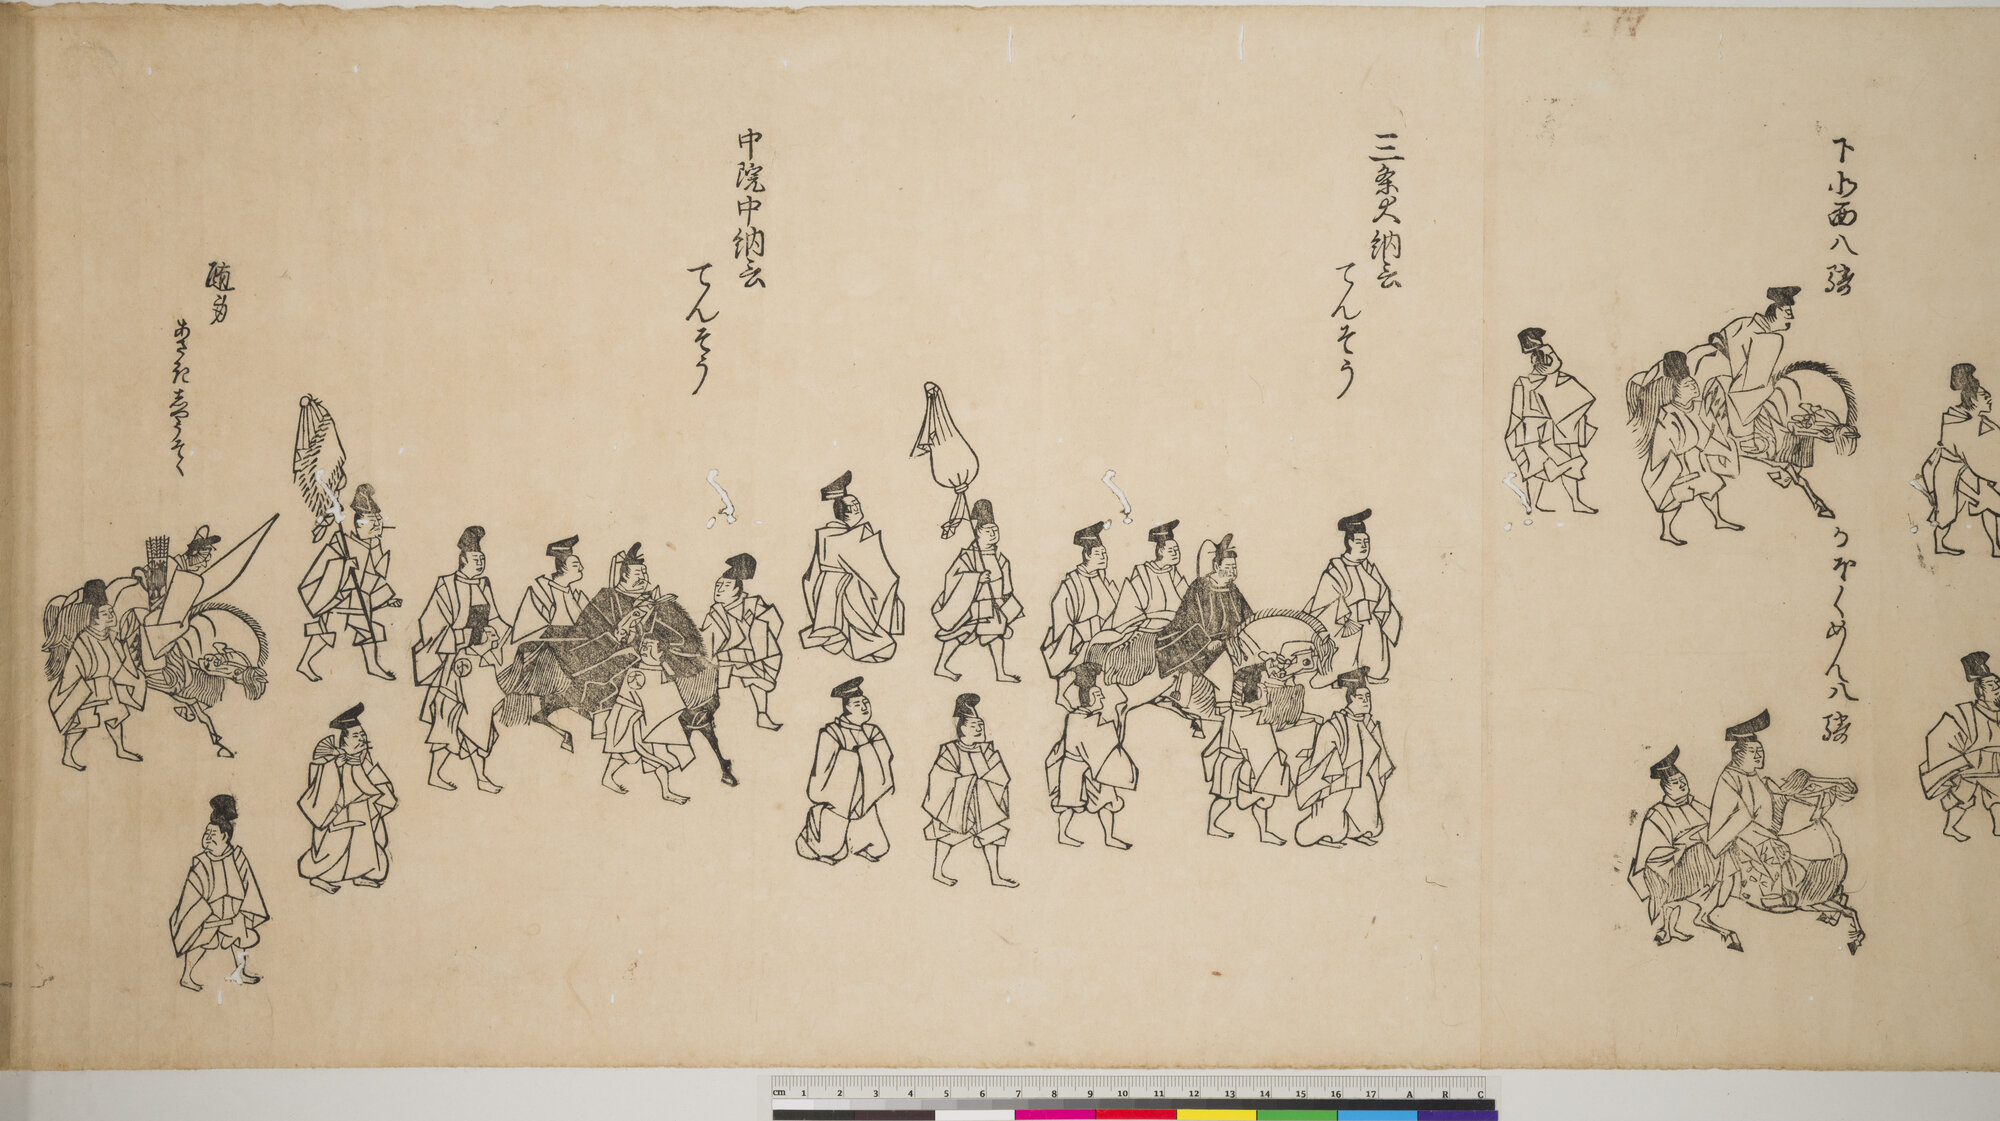 下北面八騎
うほくめん八騎
三条大納言
てんそう
中院中納言
てんそう
随身
cm 1 2 3 4 5 6 7 8 9 10 11 12 13 14 15 16 17 A R C